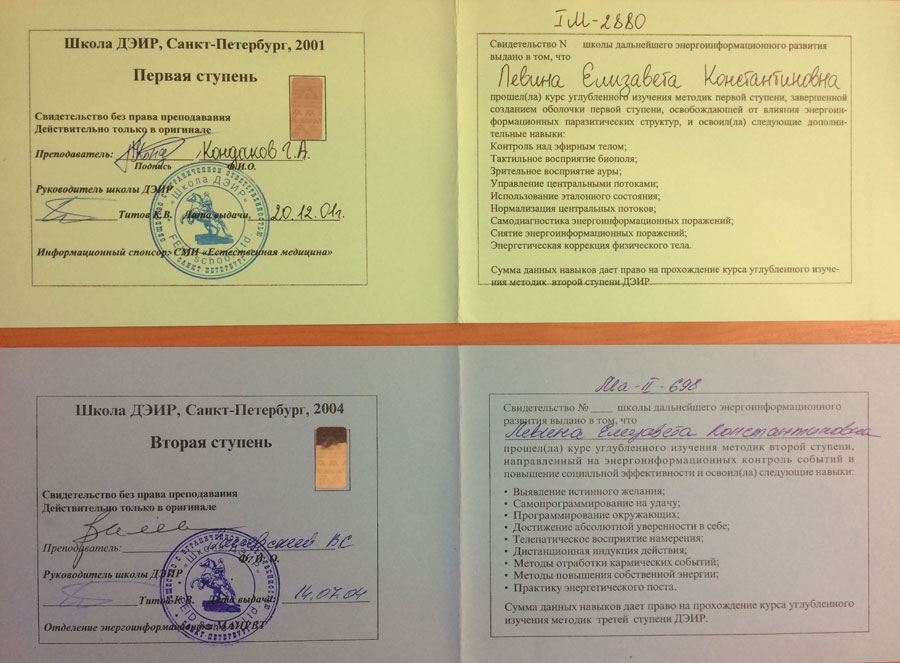 Школа ДЭИР, Санкт-Петербург, 2001
Первая ступень
Свидетельство без права преподавания
Действительно только в оригинале
Преподаватель: Кондаков Г.А.
Подпись Ф.И.О.
Руководитель школы ДЭИР
Титов К.В. Дата выдачи 20.12.01г.
Информационный спонсор: СМИ «Естественная медицина»
«Школа ДЭИР»
САНКТ ПЕТЕРБУРГ
IM-2880
Свидетельство N школы дальнейшего энергоинформационного развития
выдано в том, что
Левина Елизавета Константиновна
прошел(ла) курс углубленного изучения методик первой ступени, завершенной
созданием оболочки первой ступени, освобождающей от влияния энергоин-
формационных паразитических структур, и освоил(ла) следующие дополни-
тельные навыки:
Контроль над эфирным телом;
Тактильное восприятие биополя;
Зрительное восприятие ауры;
Управление центральными потоками;
Использование эталонного состояния;
Нормализация центральных потоков;
Самодиагностика энергоинформационных поражений;
Снятие энергоинформационных поражений;
Энергетическая коррекция физического тела.
Сумма данных навыков дает право на прохождение курса углубленного изуче-
ния методик второй ступени ДЭИР.
Школа ДЭИР, Санкт-Петербург, 2004
Вторая ступень
Свидетельство без права преподавания
Действительно только в оригинале
Преподаватель: ВС
Ф.И.О.
Руководитель школы ДЭИР
Титов К.В. Дата выдачи: 14.07.04
Отделение энергоинформационное МАИРВТ
Ма-II-698
Свидетельство № ____ школы дальнейшего энергоинформационного
развития выдано в том, что
Левина Елизавета Константиновна
прошел(ла) курс углубленного изучения методик второй ступени,
направленный на энергоинформационных контроль событий и
повышение социальной эффективности и освоил(ла) следующие навыки:
• Выявление истинного желания;
• Самопрограммирование на удачу;
• Программирование окружающих;
• Достижение абсолютной уверенности в себе;
• Телепатическое восприятие намерения;
• Дистанционная индукция действия;
• Методы отработки кармических событий;
• Методы повышения собственной энергии;
• Практику энергетического поста.
Сумма данных навыков дает право на прохождение курса углубленного
изучения методик третей ступени ДЭИР.